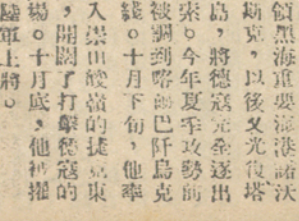 領黑海重要海港諾沃
斯克，以後又光復塔
島，將德寇完全逐出
索。今年夏季攻勢前
被調到喀爾巴阡烏克
綫。十月下旬，他率
入崇山峻嶺的捷克東
，開闢了打擊德寇的
場。十月底，他被擢
陸軍上將。